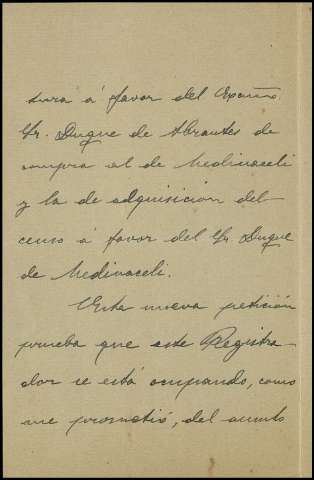 tura á favor del Excmo
Sr. Duque de Abrantes de
compra al de Medinaceli
y la de adquisicion del
censo á favor del Sr Duque
de Medinaceli.
Esta nueva petición
prueba que este Registra-
dor se está ocupando, como
me prometió, del asunto